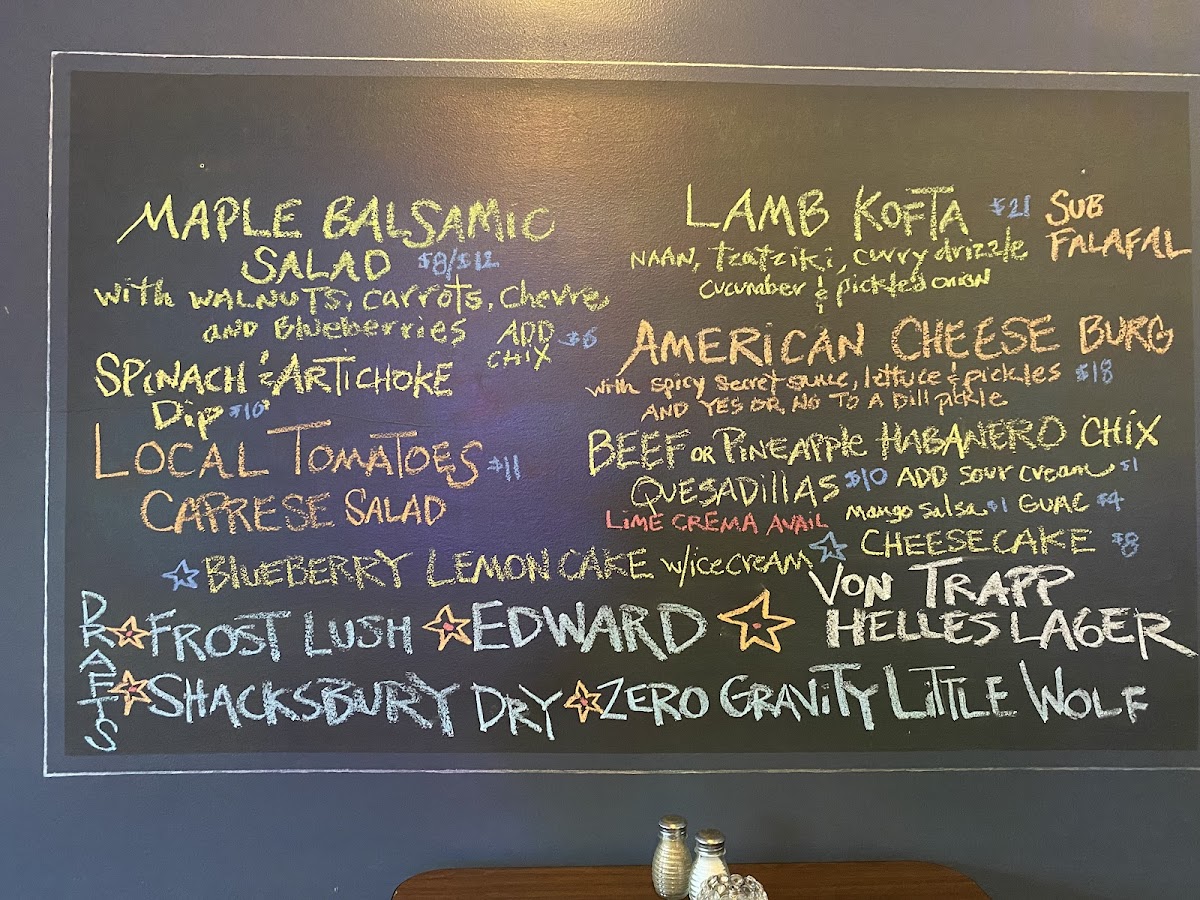 MAPLE BALSAMIC
SALAD $8/$12
with WALNUTS, carrots, chevre
and Blueberries ADD CHIX $6
SPINACH & ARTICHOKE
Dip $10
LOCAL TOMATOES $11
CAPRESE SALAD
LAMB KOFTA $21 SUB FALAFAL
NAAN, tzatziki, curry drizzle
cucumber & pickled onion
AMERICAN CHEESE BURG
with spicy secret sauce, lettuce & pickles $18
AND YES OR NO TO A Dill pickle
BEEF OR PINEAPPLE HABANERO CHIX
QUESADILLAS $10 ADD sour cream $1
LIME CREMA AVAIL Mango salsa $1 GUAC $4
BLUEBERRY LEMON CAKE w/ice cream
CHEESECAKE $8
DRAFTS
FROST LUSH EDWARD VON TRAPP
HELLES LAGER
SHACKSBURY DRY ZERO GRAVITY LITTLE WOLF